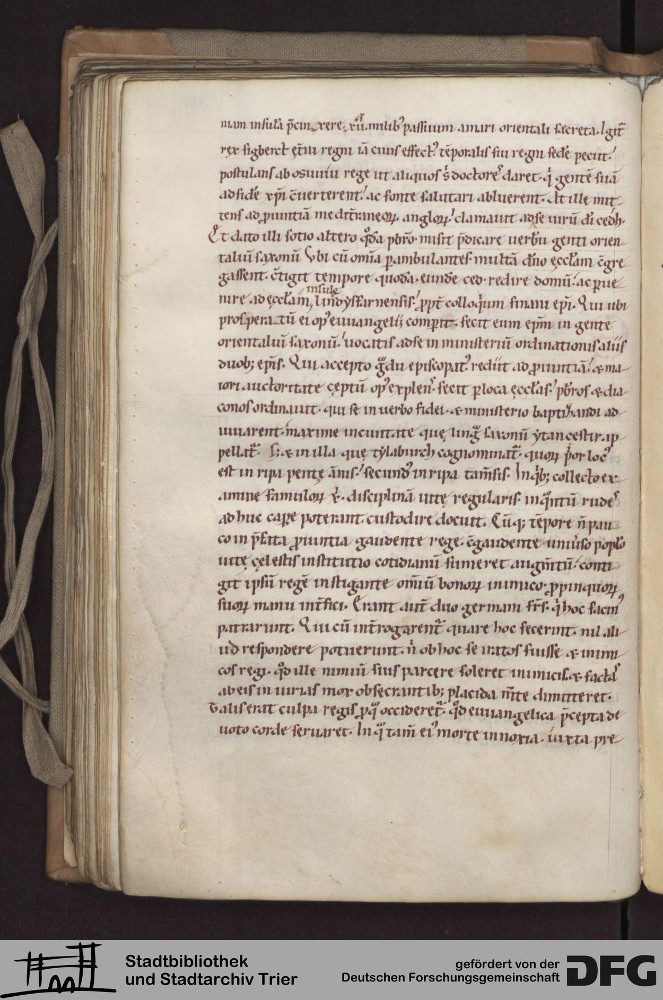 rex sigberct
postulans ab osuuiu rege ut aliquos ſ doctoreſ daret. q gentē suā
ad fidē xp̄i c̄uerterent. ac fonte salutari abluerent. At ille mit
tens ad ꝓuintiā mediterraneorꝝ anglorꝝ clamauit ad se uirū dī cedh.
Et dato illi sotio altero q̄dā pbro. misit p̄dicare uerbū genti orien
taliū saxonū. Vbi cū omīa ꝑambulantes multā dn̄o ęcctam c̄gre
gassent. c̄tigit tempore quodā eundē ced redire domū. ac ꝑue
nire ad ęcctam insule lindysfarnensis ꝓpt colloquium finani epi. Qui ubi
prospera tū ei opꝰ euuangelii comperit. fecit eum epm in gente
orientaliū saxonū. uocatis ad se in ministeriū ordinationis aliis
duob; epis. Qui accepto gdu episcopatꝰ rediit ad ꝓuintiā. & ma
iori auctoritate cęptū opꝰ explens fecit ꝑ loca ęcctas. pbros & dia
conos ordinauit. qui se in uerbo fidei. & ministerio baptizandi ad
iuuarent. maxime in ciuitate que lingꝰ saxonū ythancestir ap
pellat. S; & in illa que tylaburch cognominat. quorꝝ prior locꝰ
est in ripa pente amnis. secundꝰ in ripa tamesis. In qb; collecto ex
amine famulorꝝ x. disciplinā uitę regularis inqntū rudes
adhuc capere poterant custodire docuit. Cūq; tēpore n̄ pau
co in p̄fata ꝓuintia gaudente rege. c̄gaudente uniuerso poplo
uitę cęlestis institutio cotidianū sumeret augmtū. conti
git ipsū regē instigante omniū bonorꝝ inimico ꝓpinquorꝝ
suorꝝ manu intfici. Erant aut duo germani frs. q hoc facinꝰ
patrarunt. Qui cū introgarent quare hoc fecerint. nil ali
ud respondere potuerunt. n̄ ob hoc se iratos fuisse & inimi
cos regi. qd ille nimiū suis parcere soleret inimicis. & factas
ab eis iniurias mox obsecrantib; placida mte dimitteret.
Talis erat culpa regis ꝓ q occideret. qd euuangelica p̄cepta de
uoto corde seruaret. In q tam eiꝰ morte innoxia. iuxta pre
Stadtbibliothek
und Stadtarchiv Trier
gefördert von der
Deutschen Forschungsgemeinschaft
DFG